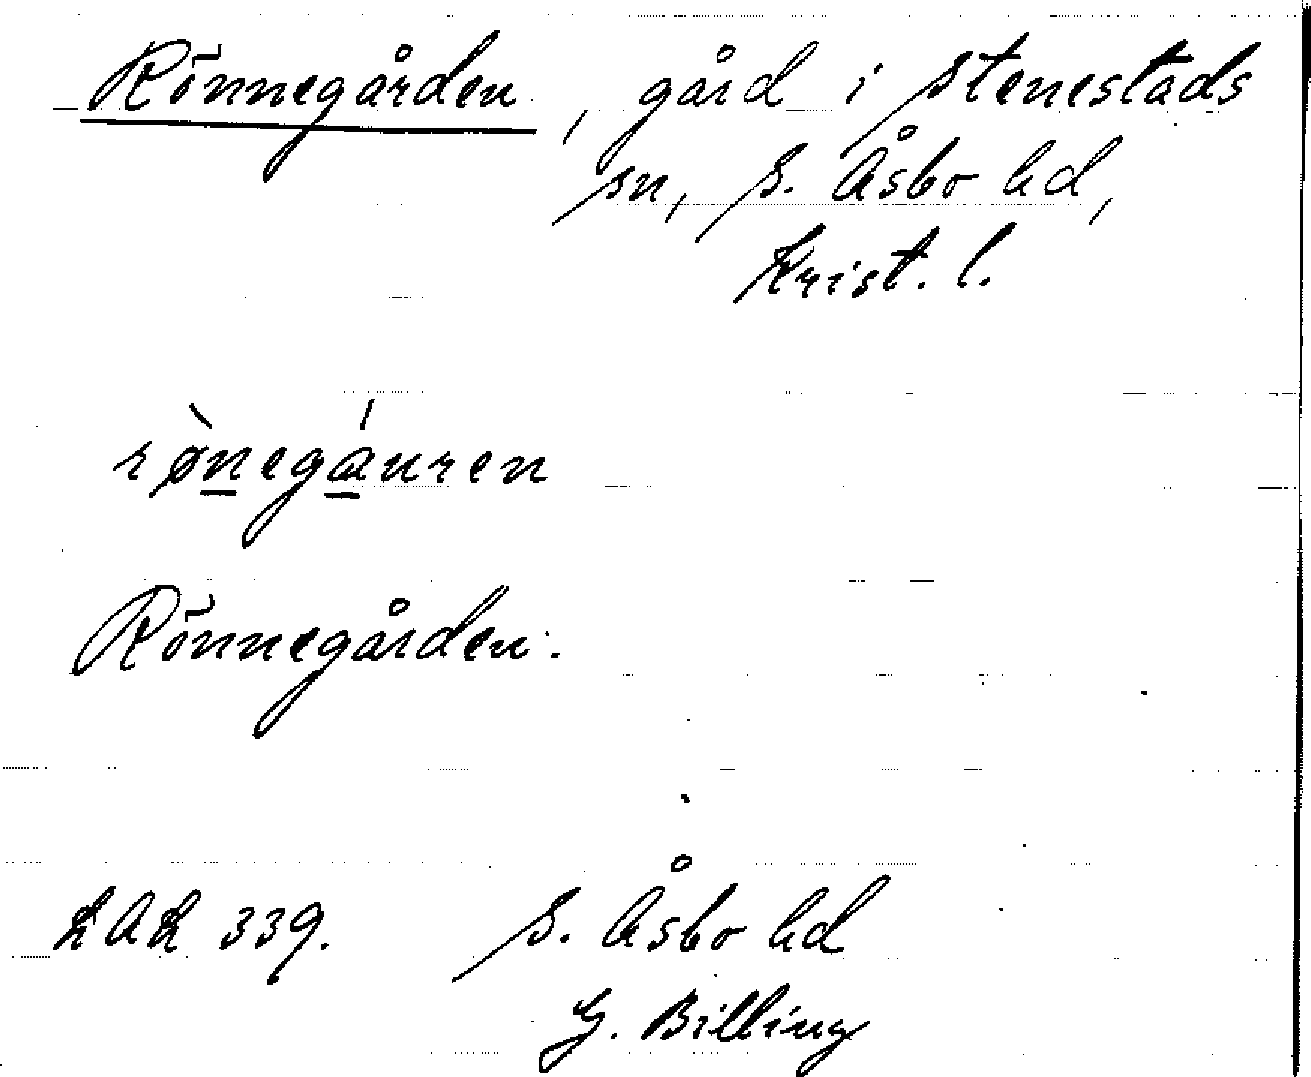 Rönnegården, gård i Stenestads
sn, S. Åsbo hd,
Krist. l.
rø̀negáuren
Rönnegården.
LAL 339. S. Åsbo hd
G. Billing